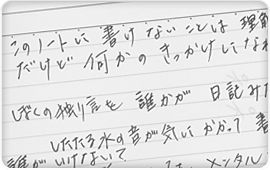 このノートに書けないことは理解
だけど何かのきっかけになれ
ぼくの独言を誰かが日記みた
したたる水の音が気にかかって書
誰がいけないて?
メンタル